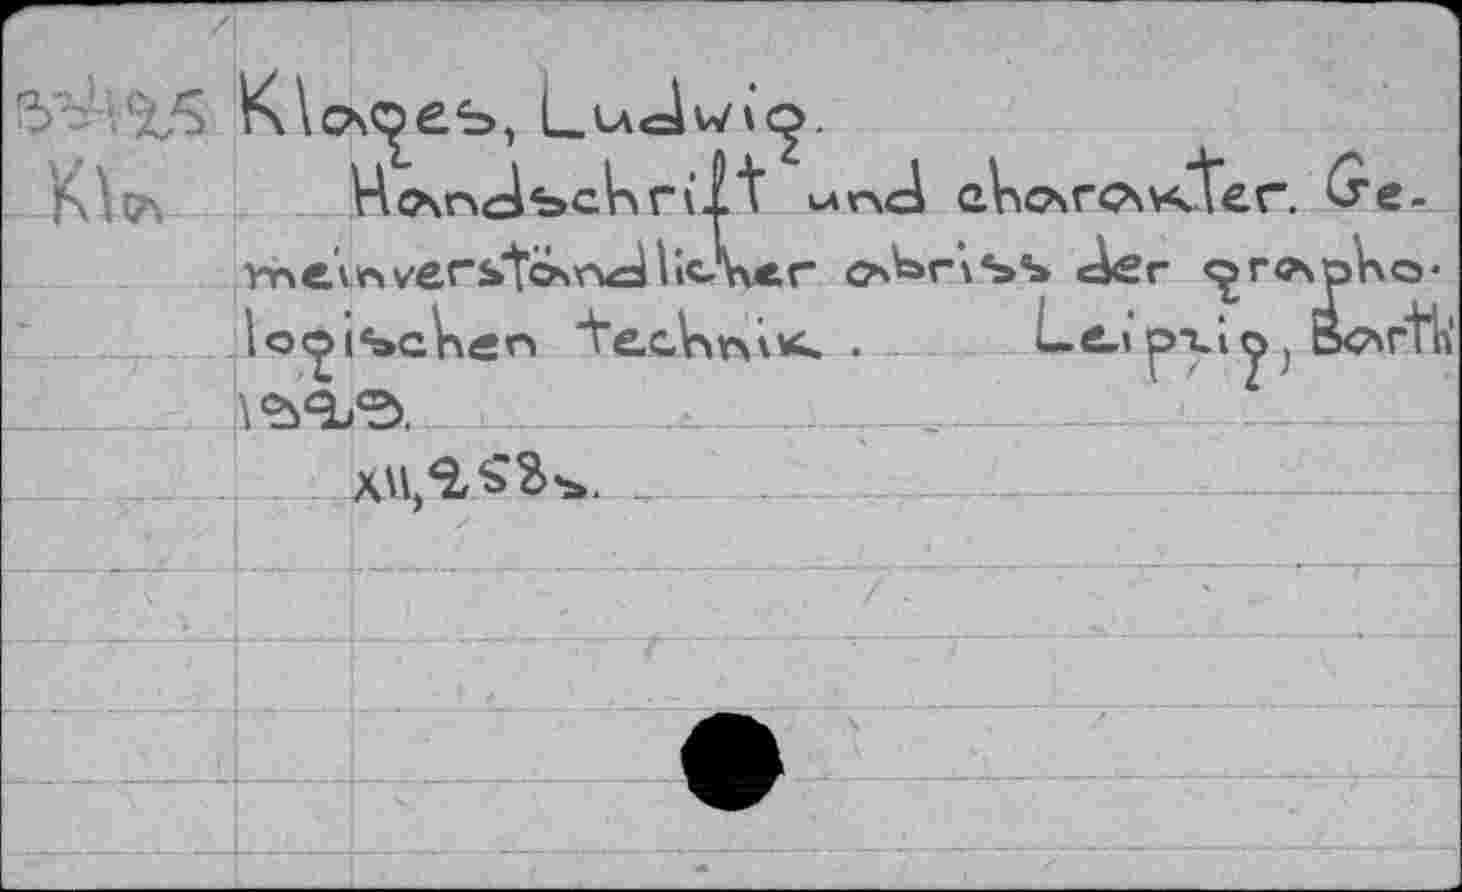 Klages, Ludwig.
Kla Handschrift und charakter. Ge-
meinverständlicher abriss der grapho-
logischen technik. Leipzig, Barth
1929.
XII, 258 s.